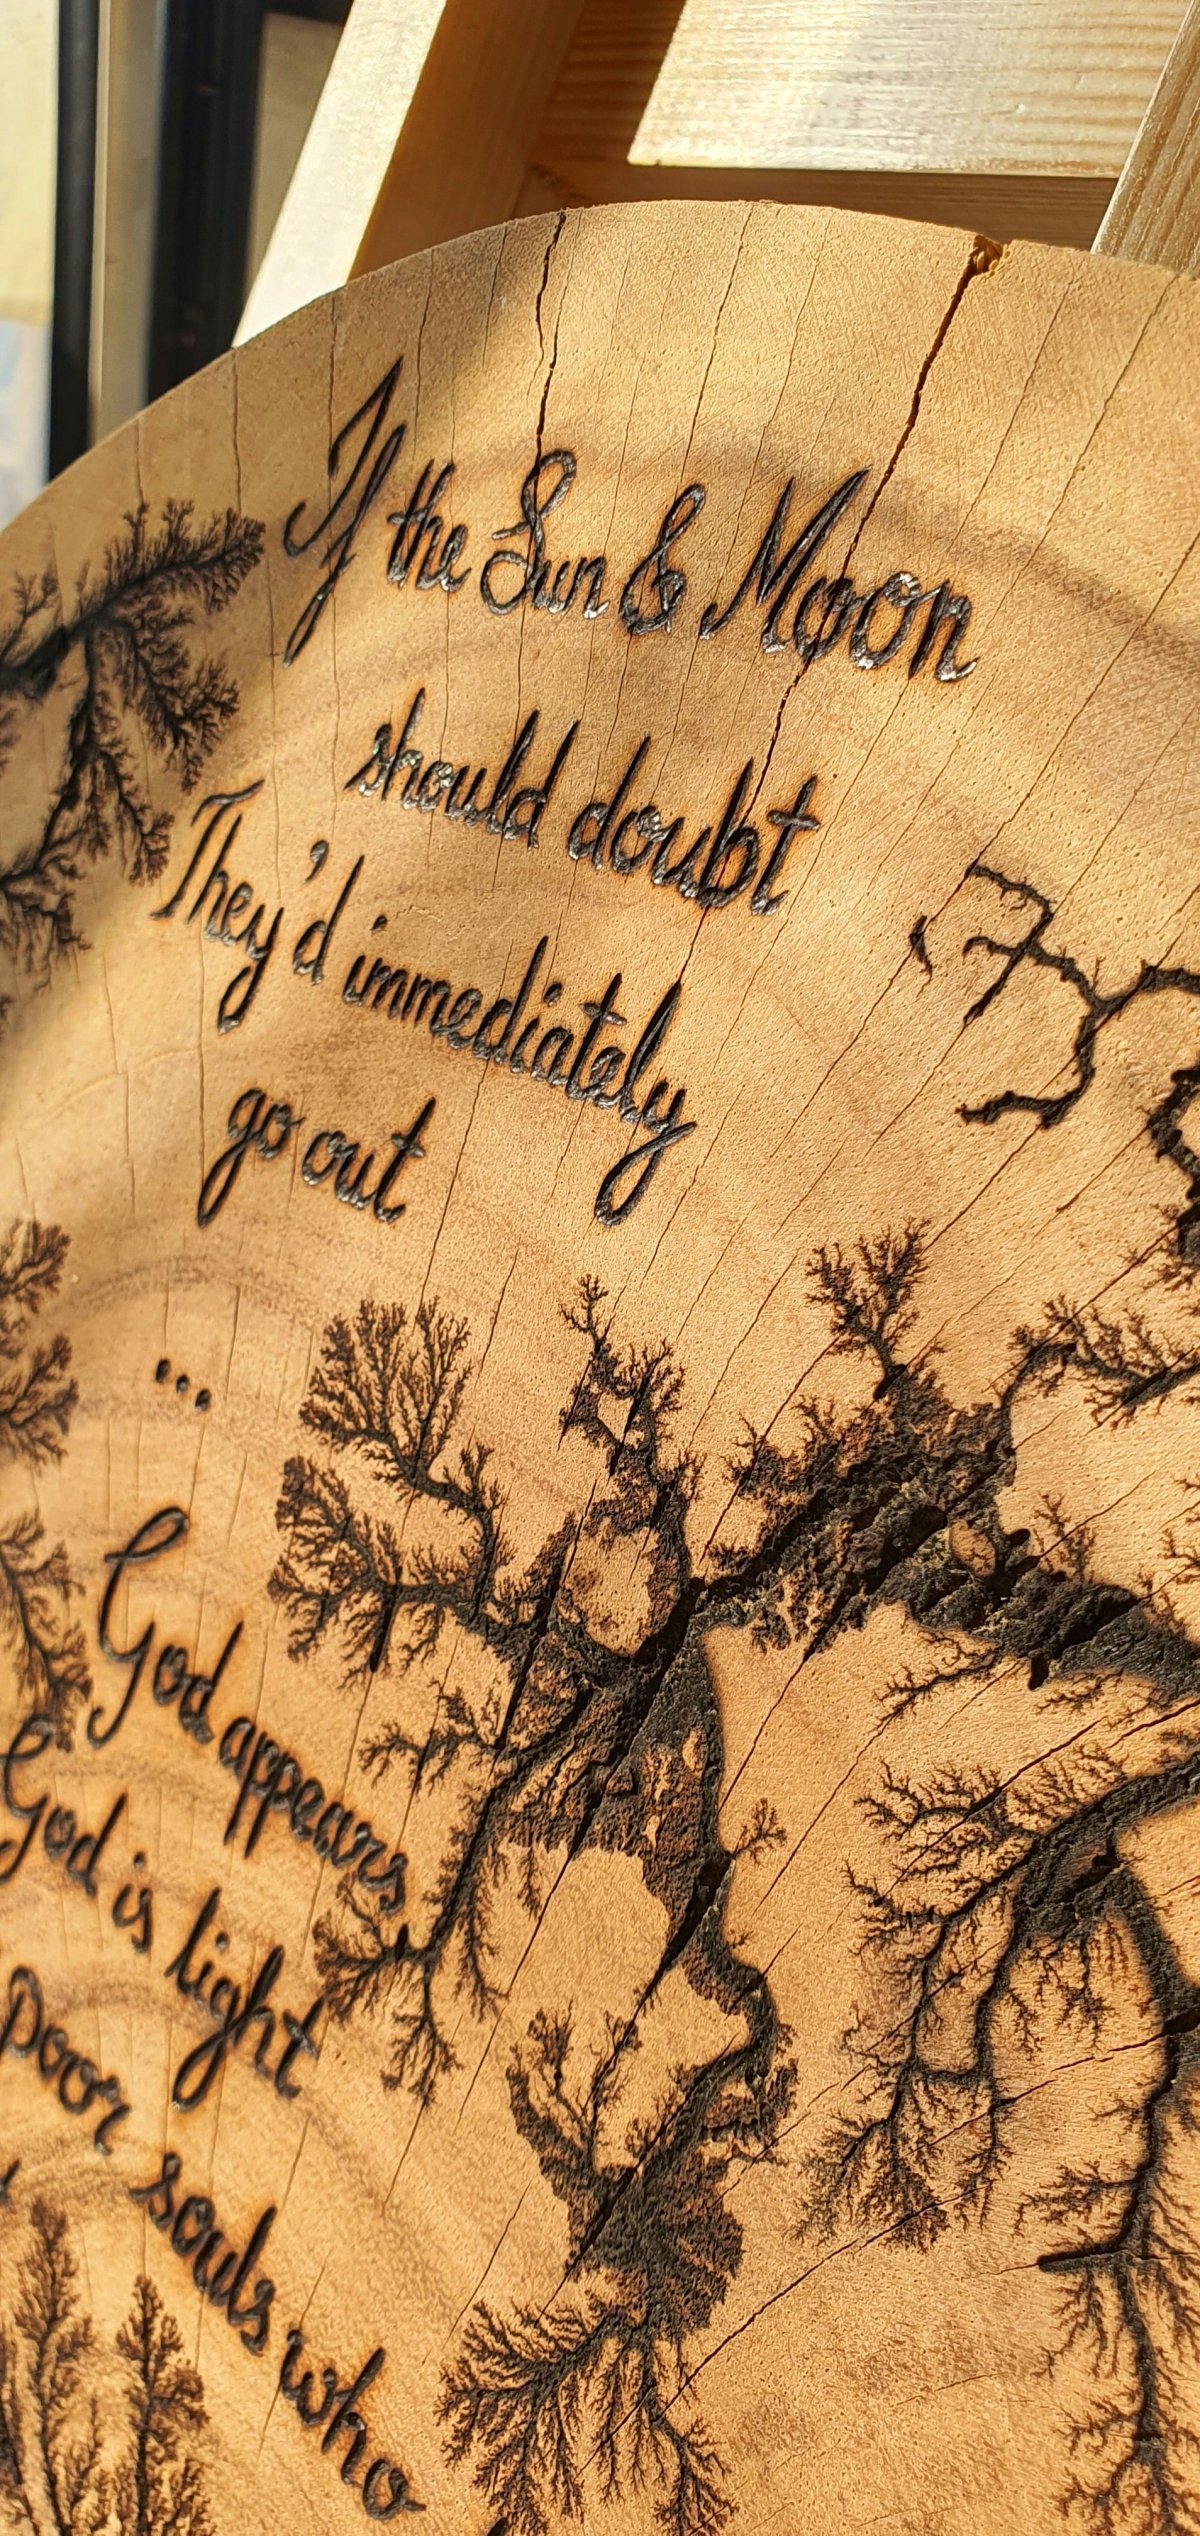 If the Sun & Moon
should doubt
They'd immediately
go out
...
God appears
God is light
poor souls who